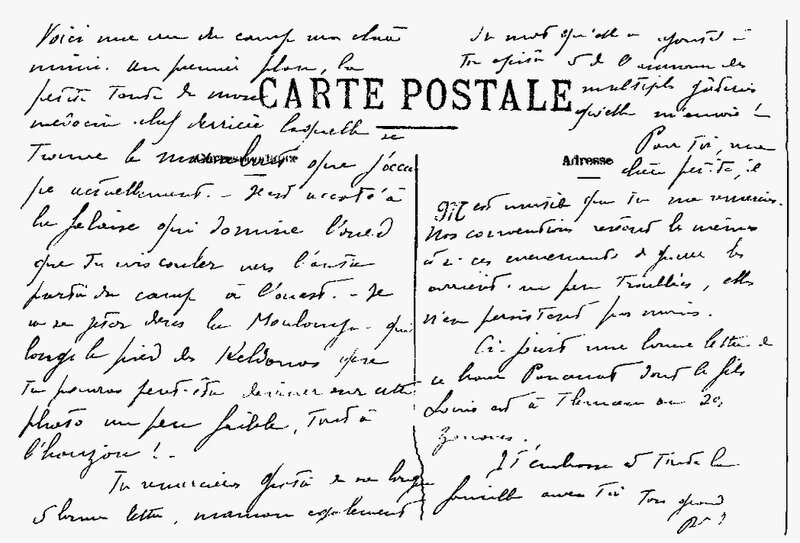 Voici une vue du camp ma chère
mimi. Au premier plan, la
petite tente de mon
médecin chef derrière laquelle se
trouve le que j'occu
pe actuellement. - Il est accoté à
la falaise qui domine l'oued
que tu vois couler vers l'autre
partie du camp à l'ouest. - Il
va se jeter dans la Moulouya qui
longe le pied des Kebdanas que
tu pourras peut-être deviner sur cette
photo un peu faible, tout à
l'horizon ! -
Tu remercieras de sa longue
& bonne lettre, maman également
du mot qu'elle a ajouté à
& de l'annonce des
multiples gâteries
qu'elle m'envoie !
CARTE POSTALE
Correspondance
Adresse
Pour toi, ma
chère petite, il
M est inutile que tu me remercies.
Nos conventions restent les mêmes
& si ces événements de guerre les
arrivent un peu troublées, elles
n'en persistent pas moins.
Ci-joint une bonne lettre de
ce brave dont le fils
Louis est à Tlemcen au 2e
zouaves.
Je t'embrasse & toute la
famille avec toi. Ton grand